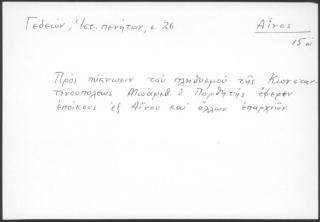 Γεδεών, Ἱστ. πενήτων, σ. 26
Αἶνος
15 ω
Πρὸς πύκνωσιν τοῦ πληθυσμοῦ τῆς Κωνσταν-
τινουπόλεως Μωάμεθ ὁ Πορθητὴς ἔφερεν
ἐποίκους ἐξ Αἴνου καὶ ἄλλων ἐπαρχιῶν